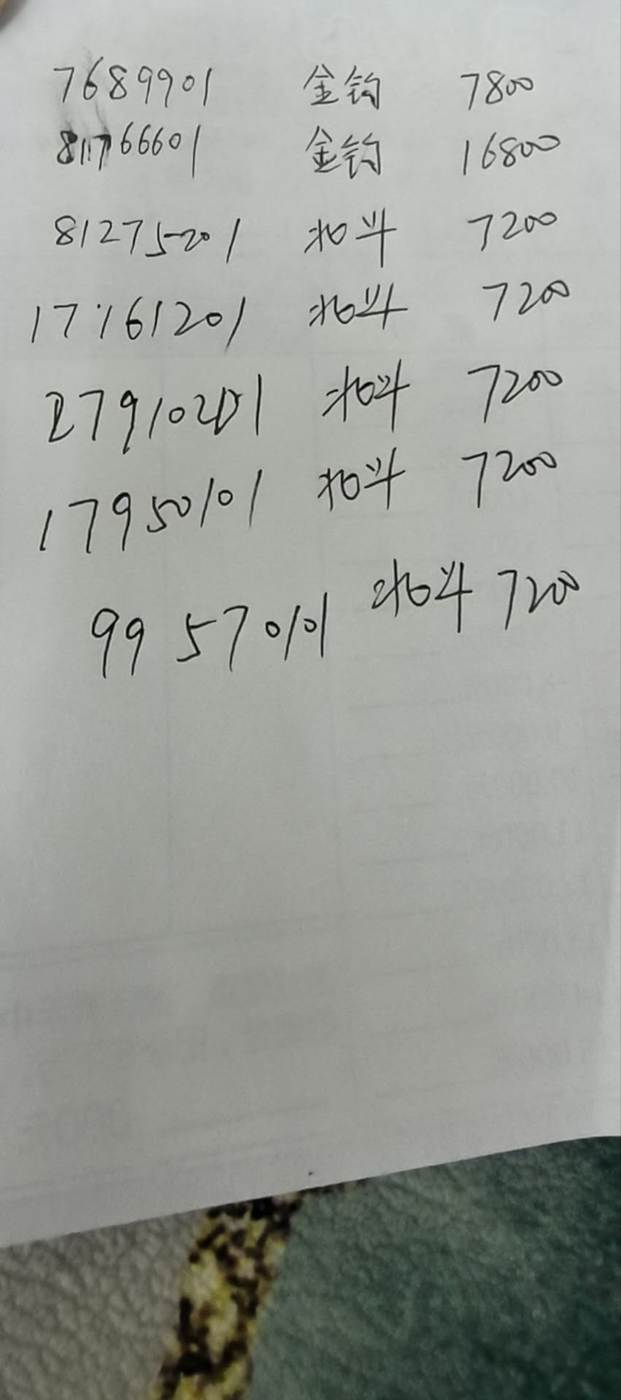 7689901 金钩 7800
81766601 金钩 16800
81275201 北斗 7200
17161201 北斗 7200
27910201 北斗 7200
17950101 北斗 7200
99570101 北斗 7200